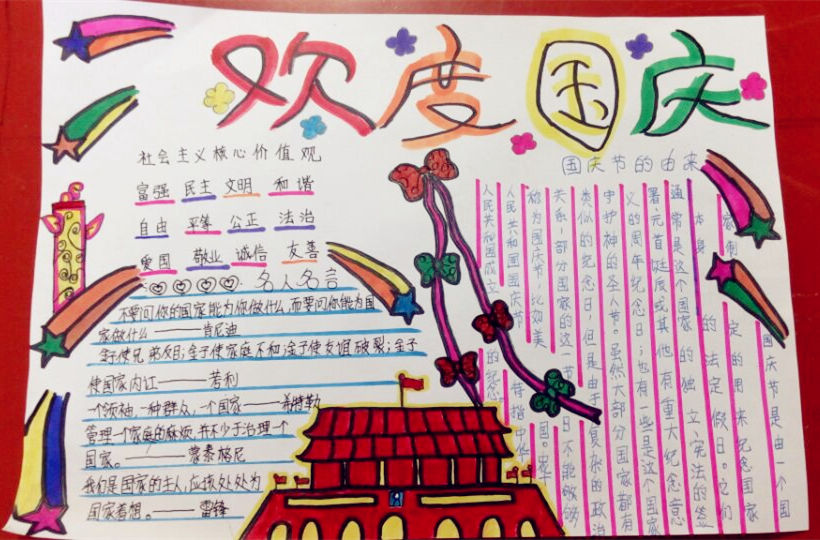 欢度国庆
社会主义核心价值观
富强 民主 文明 和谐
自由 平等 公正 法治
爱国 敬业 诚信 友善
名人名言
不要问你的国家能为你做什么,而要问你能为国
家做什么 ——肯尼迪
金子使兄弟反目;金子使家庭不和;金子使友谊破裂;金子
使国家内讧——考利
一个领袖,一种群众,一个国家——希特勒
管理一个家庭的麻烦,并不少于治理一个
国家。——蒙泰格尼
我们是国家的主人,应该处处为
国家着想。——雷锋
国庆节的由来
国庆节是由一个国
家制定的用来纪念国家
本身的法定假日。它们
通常是这个国家的独立、宪法的签
署、元首诞辰或其他有重大纪念意
义的周年纪念日;也有一些是这个国家
守护神的圣人节。虽然大部分国家都有
类似的纪念日,但是由于复杂的政治
关系,一部分国家的这一节日不能够
称为国庆节,比如美国。
人民共和国国庆节特指中华
人民共和国成立的纪念